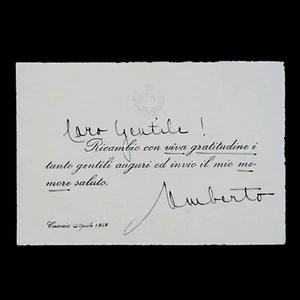 Caro Gentile!
Ricambio con viva gratitudine i
tanto gentili auguri ed invio il mio me-
more saluto.
Umberto
Cascais Aprile 1954